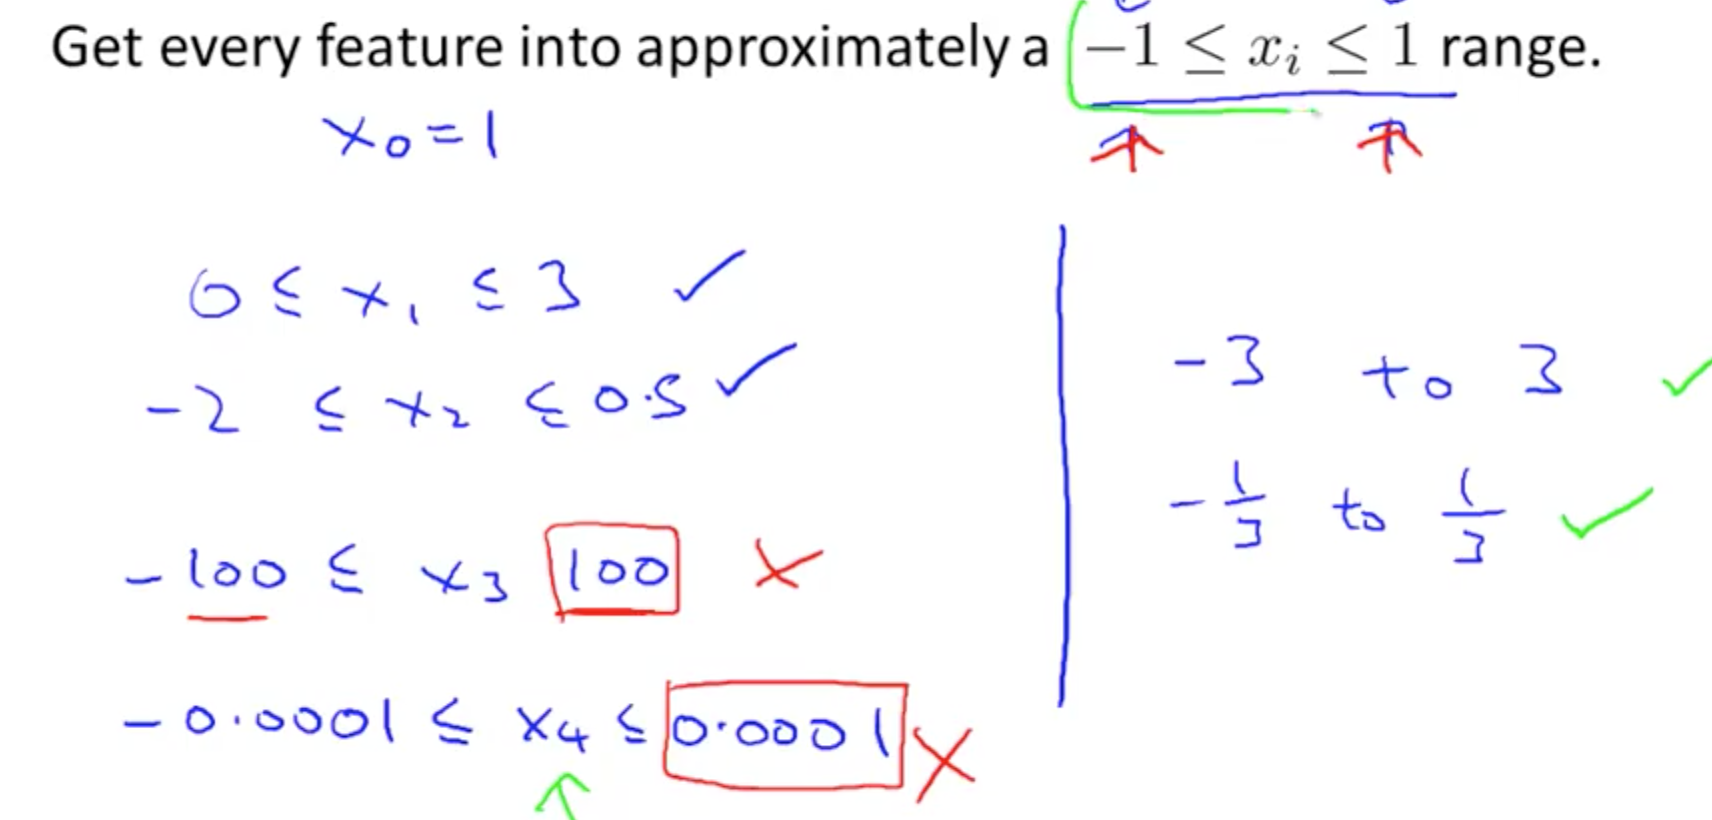 Get every feature into approximately a −1 ≤ xᵢ ≤ 1 range.
x₀ = 1
0 ≤ x₁ ≤ 3 ✓
-2 ≤ x₂ ≤ 0.5 ✓
-100 ≤ x₃ 100 ✗
-0.0001 ≤ x₄ ≤ 0.0001 ✗
-3 to 3 ✓
-1/3 to 1/3 ✓